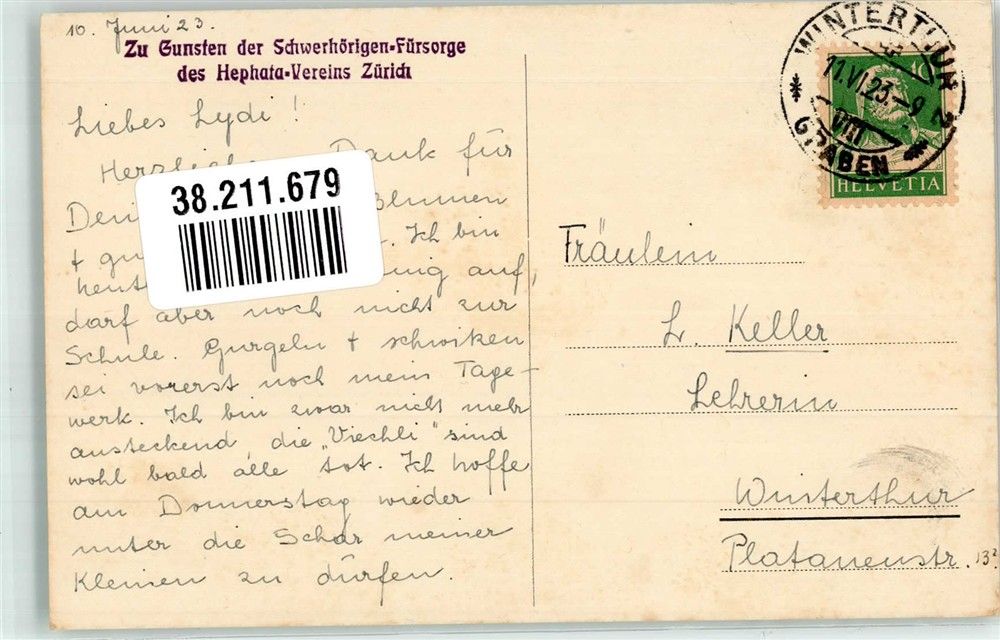 10. Juni 23.
Zu Gunsten der Schwerhörigen-Fürsorge
des Hephata-Vereins Zürich
Liebes Lydi!
Dank für
Blumen
+ Ich bin
auf,
darf aber noch nicht zur
Schule. Gurgeln + schwitzen
sei vorerst noch mein Tage-
werk. Ich bin zwar nicht mehr
ansteckend die „Viechli" sind
wohl bald alle tot. Ich hoffe
am Donnerstag wieder
unter die Schar meiner
Kleinen zu dürfen.
38.211.679
WINTERTHUR 2
11.VI.23.-9
VIII
GRABEN
HELVETIA
Fräulein
L. Keller
Lehrerin
Winterthur
Platanenstr. 13